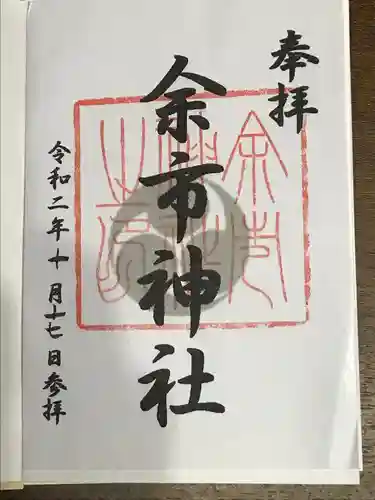 奉拝
余市神社
令和二年十月十七日参拝
余市
神社
之印